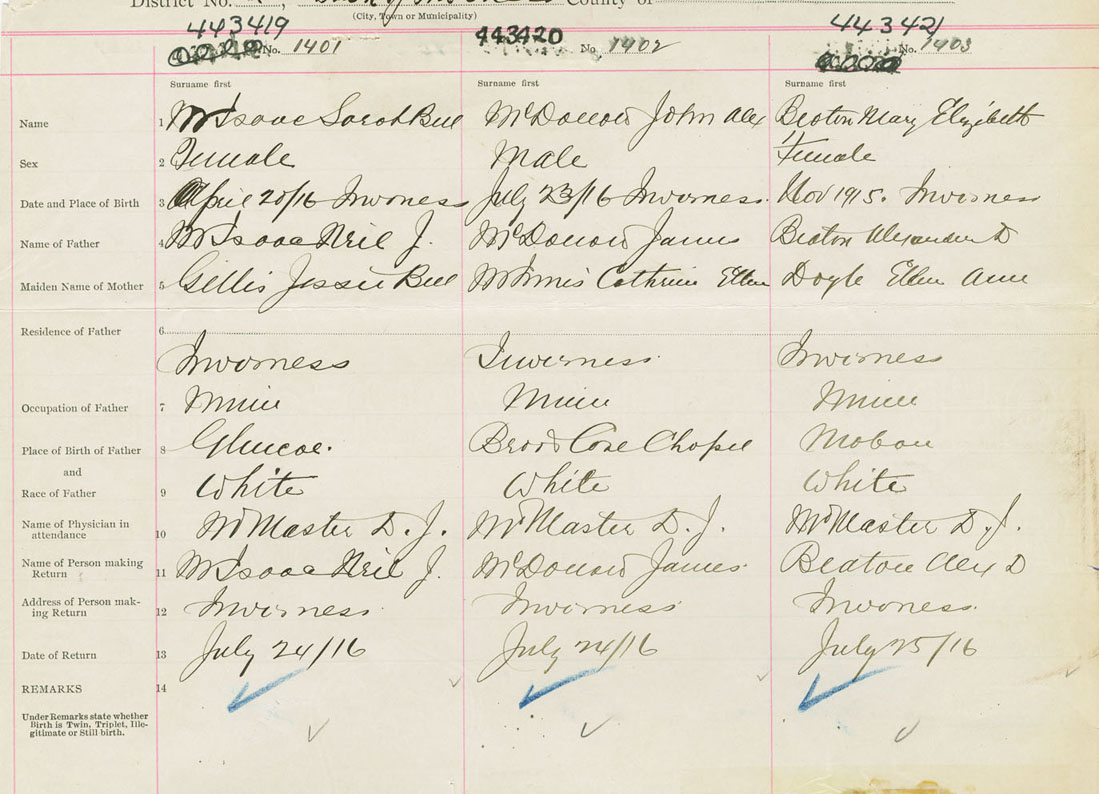 District No. County of
(City, Town or Municipality)
443419 443420 443421
No. 1401 No 1402 No. 1403
Surname first Surname first Surname first
Name 1 McIsaac Sarah Bell McDonald John Alex Beaton Mary Elizabeth
Sex 2 Female Male Female
Date and Place of Birth 3 April 20/16 Inverness July 23/16 Inverness Nov 1915. Inverness
Name of Father 4 McIsaac Neil J. McDonald James Beaton Alexander D
Maiden Name of Mother 5 Gillis Jessie Bell McInnis Cathrine Ellen Doyle Ellen Ann
Residence of Father 6
Inverness Inverness Inverness
Occupation of Father 7 Miner Miner Miner
Place of Birth of Father 8 Glencoe. Broad Cove Chapel Mabou
and
Race of Father 9 White White White
Name of Physician in
attendance 10 McMaster D. J. McMaster D. J. McMaster D. J.
Name of Person making
Return 11 McIsaac Neil J. McDonald James Beaton Alex D
Address of Person mak-
ing Return 12 Inverness Inverness Inverness
Date of Return 13 July 24/16 July 24/16 July 25/16
REMARKS 14
Under Remarks state whether
Birth is Twin, Triplet, Ille-
gitimate or Still-birth.